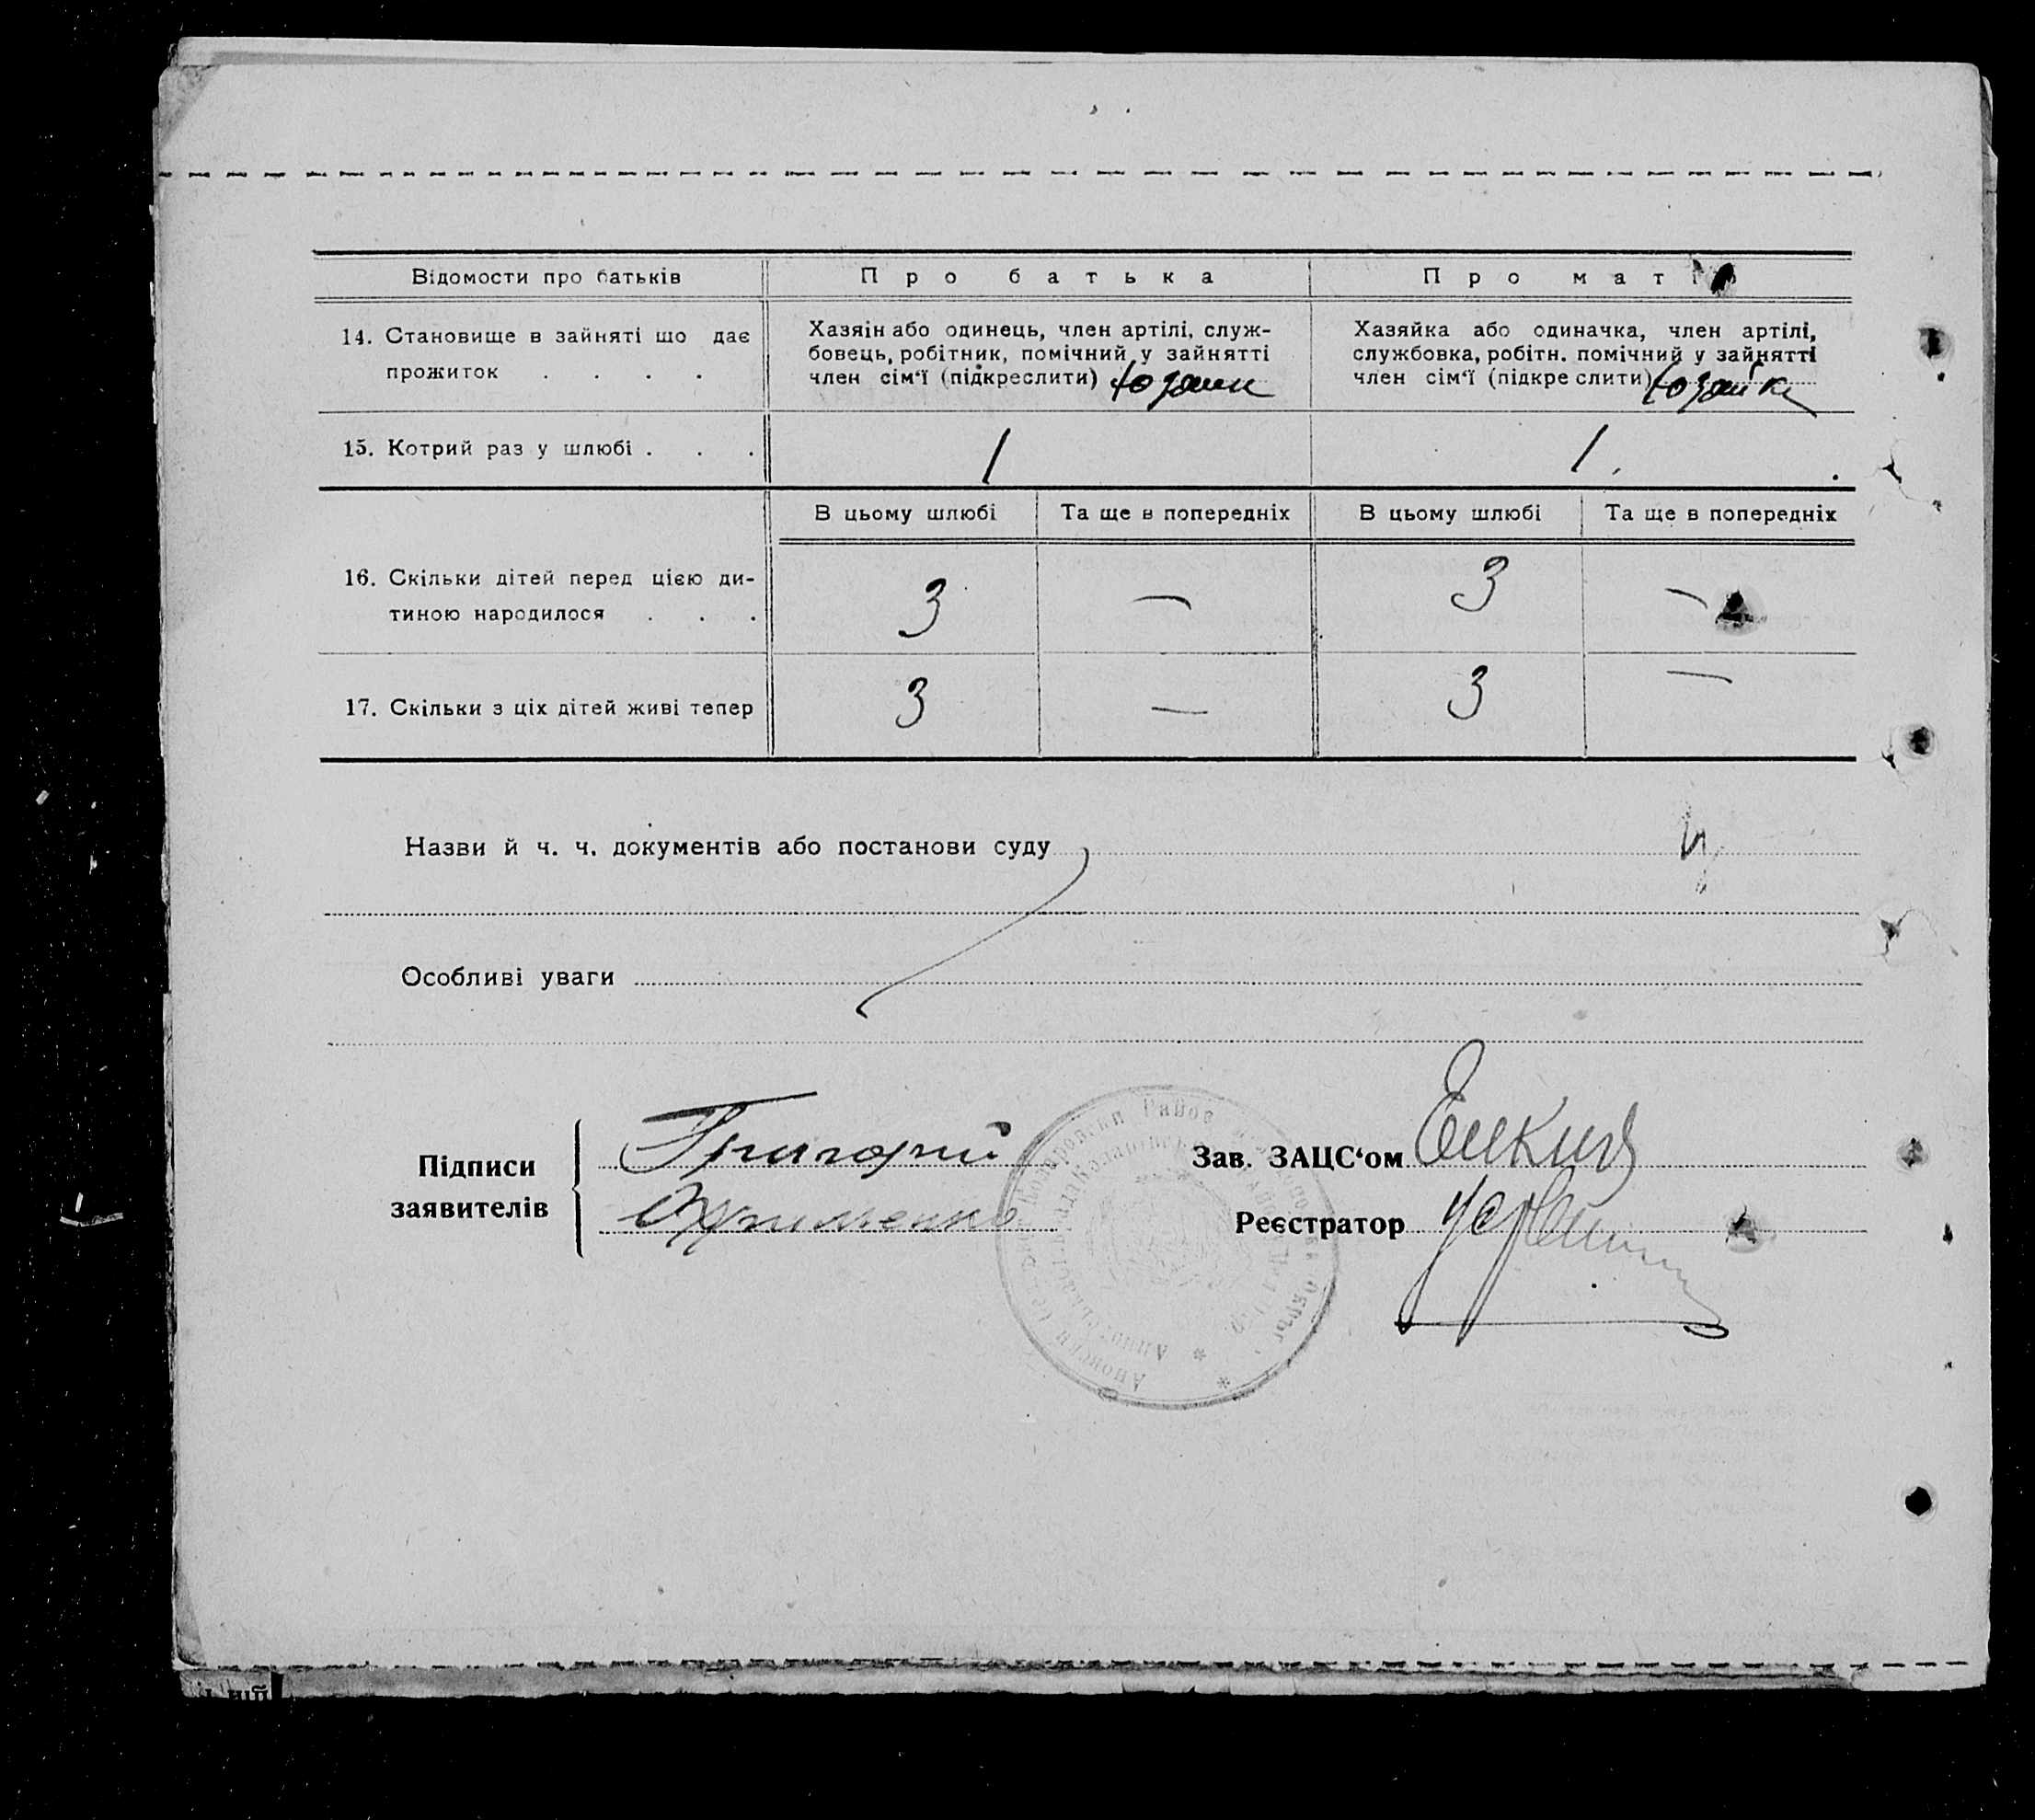 Відомости про батьків
Про батька
Про матір
14. Становище в зайняті що дає
прожиток . . . .
Хазяїн або одинець, член артілі, служ-
бовець, робітник, помічний у зайнятті
член сім‘ї (підкреслити) хозяин
Хазяйка або одиначка, член артілі,
службовка, робітн. помічний у зайнятті
член сім‘ї (підкре слити) хозяйка
15. Котрий раз у шлюбі . . .
1
1.
В цьому шлюбі
Та ще в попередніх
В цьому шлюбі
Та ще в попередніх
16. Скільки дітей перед цією ди-
тиною народилося . . .
3
—
3
—
17. Скільки з ціх дітей живі тепер
3
—
3
—
Назви й ч. ч. документів або постанови суду
Особливі уваги
Підписи
заявителів
Григорий
Зав. ЗАЦС‘ом
Реєстратор